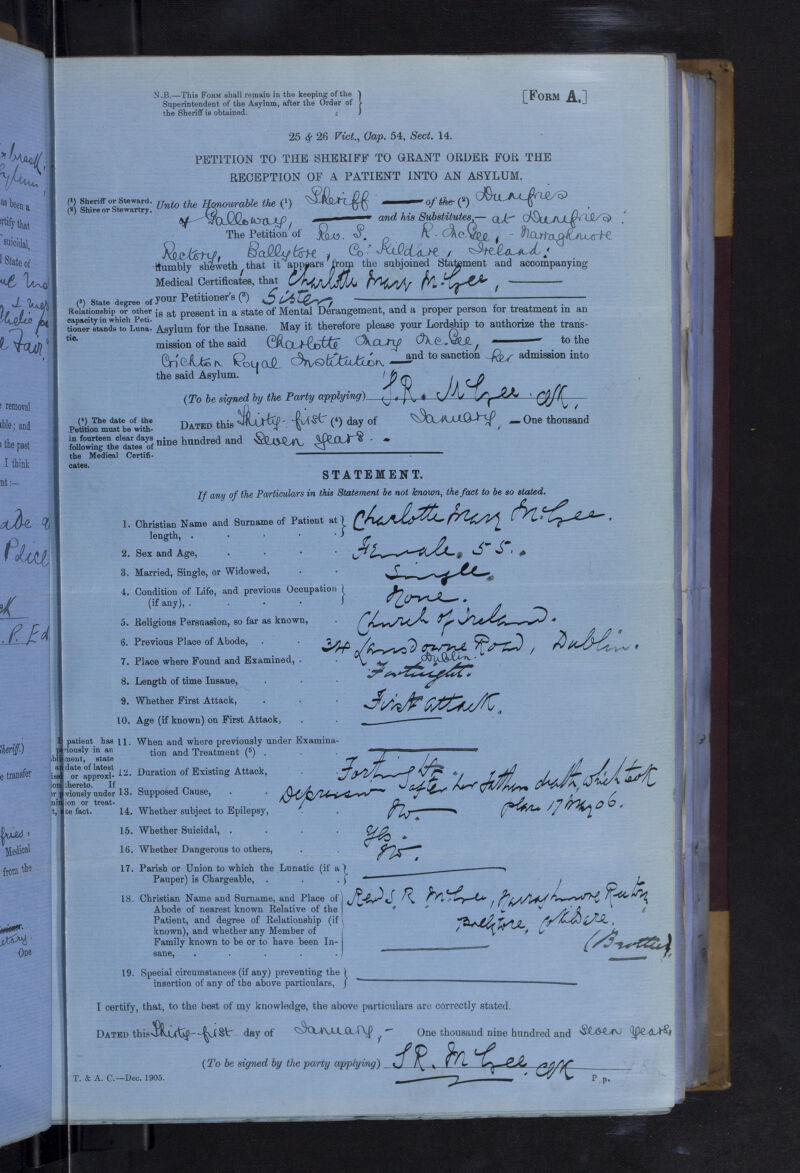 N.B.—This Form shall remain in the keeping of the
Superintendent of the Asylum, after the Order of
the Sheriff is obtained.
[Form A.]
25 & 26 Vict., Cap. 54, Sect. 14.
PETITION TO THE SHERIFF TO GRANT ORDER FOR THE
RECEPTION OF A PATIENT INTO AN ASYLUM.
(1) Sheriff or Steward.
(2) Shire or Stewartry.
Unto the Honourable the (1) Sheriff of the (2) Dumfries
& Galloway, and his Substitutes,— at Dumfries.
The Petition of Rev. S. R. McGee, - Narraghmore
Rectory, Ballytore, Co. Kildare, Ireland.
Humbly sheweth, that it appears from the subjoined Statement and accompanying
Medical Certificates, that Charlotte Mary McGee,
(3) State degree of
Relationship or other
capacity in which Peti-
tioner stands to Luna-
tic.
your Petitioner's (3) Sister,
is at present in a state of Mental Derangement, and a proper person for treatment in an
Asylum for the Insane. May it therefore please your Lordship to authorize the trans-
mission of the said Charlotte Mary McGee, to the
Crichton Royal Institution and to sanction her admission into
the said Asylum.
(To be signed by the Party applying) S.R. McGee
(4) The date of the
Petition must be with-
in fourteen clear days
following the dates of
the Medical Certifi-
cates.
Dated this Thirty-first (4) day of January, — One thousand
nine hundred and Seven years.
STATEMENT.
If any of the Particulars in this Statement be not known, the fact to be so stated.
1. Christian Name and Surname of Patient at length, Charlotte Mary McGee.
2. Sex and Age, Female. 55.
3. Married, Single, or Widowed, Single.
4. Condition of Life, and previous Occupation (if any), None.
5. Religious Persuasion, so far as known, Church of Ireland.
6. Previous Place of Abode, 34 Lansdowne Road, Dublin.
7. Place where Found and Examined, Dublin.
8. Length of time Insane, Fortnight.
9. Whether First Attack, First attack.
10. Age (if known) on First Attack,
11. When and where previously under Examina-
tion and Treatment (5)
12. Duration of Existing Attack, Fortnight
13. Supposed Cause, Depression after her fathers death, which took
place 17 May 06.
14. Whether subject to Epilepsy, No.
15. Whether Suicidal, Yes.
16. Whether Dangerous to others, No.
17. Parish or Union to which the Lunatic (if a
Pauper) is Chargeable,
18. Christian Name and Surname, and Place of
Abode of nearest known Relative of the
Patient, and degree of Relationship (if
known), and whether any Member of
Family known to be or to have been In-
sane,
Revd S. R. McGee, Narraghmore Rectory
Ballytore, Co Kildare.
(Brother)
19. Special circumstances (if any) preventing the
insertion of any of the above particulars,
I certify, that, to the best of my knowledge, the above particulars are correctly stated.
Dated this Thirty-first day of January, - One thousand nine hundred and Seven years
(To be signed by the party applying) S.R. McGee
T. & A. C.—Dec. 1905.
P p.